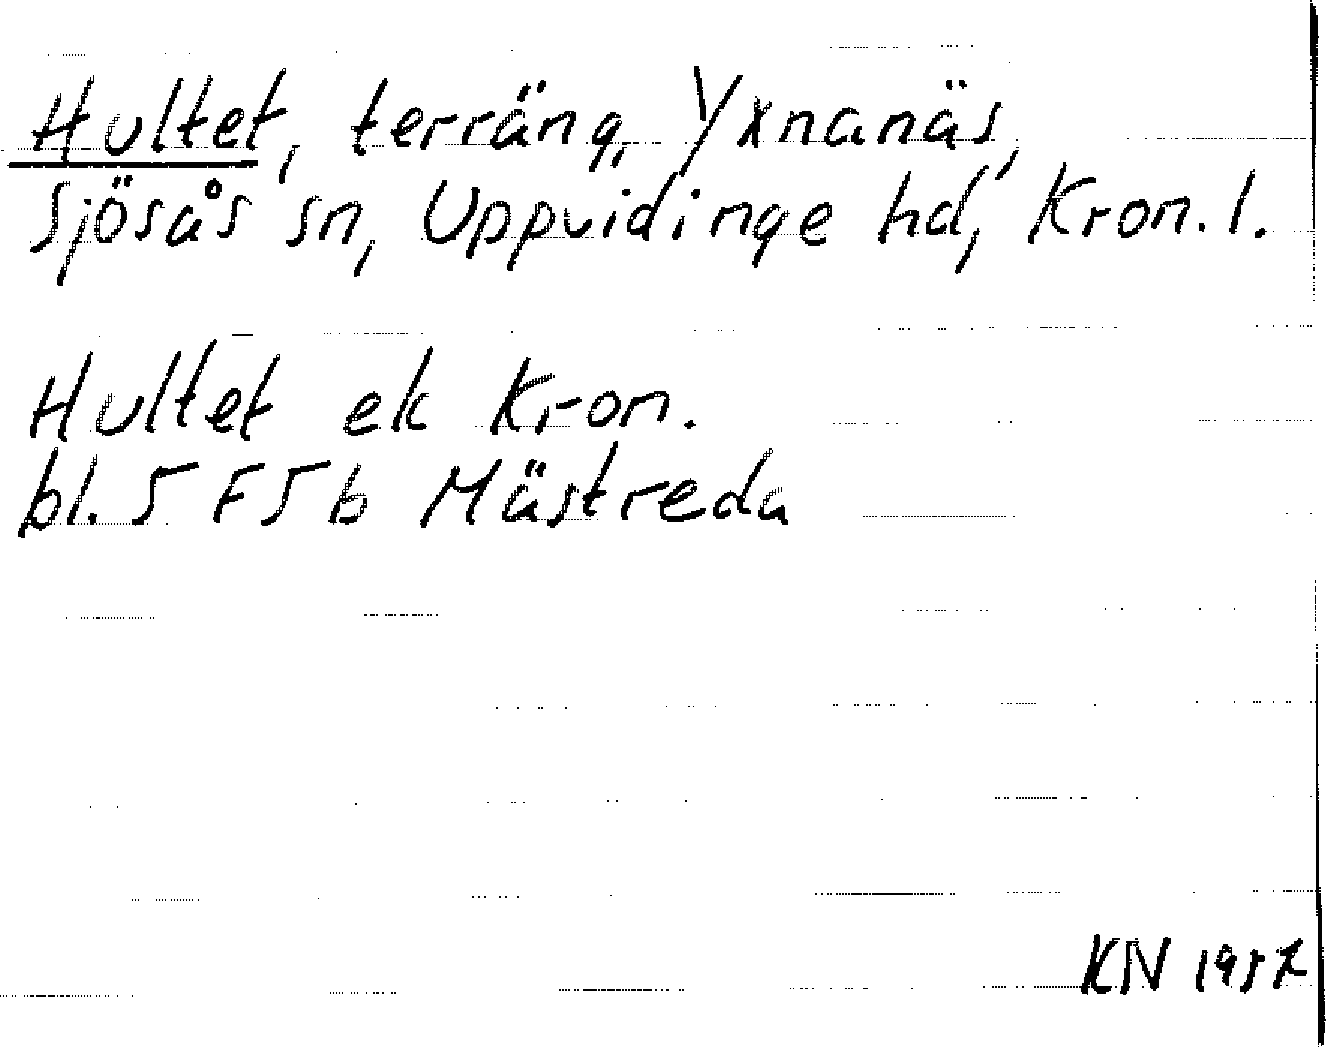 Hultet, terräng, Yxnanäs,
Sjösås sn, Uppvidinge hd, Kron. l.
Hultet ek Kron.
bl. 5 F 5 b Mästreda
KN 1957